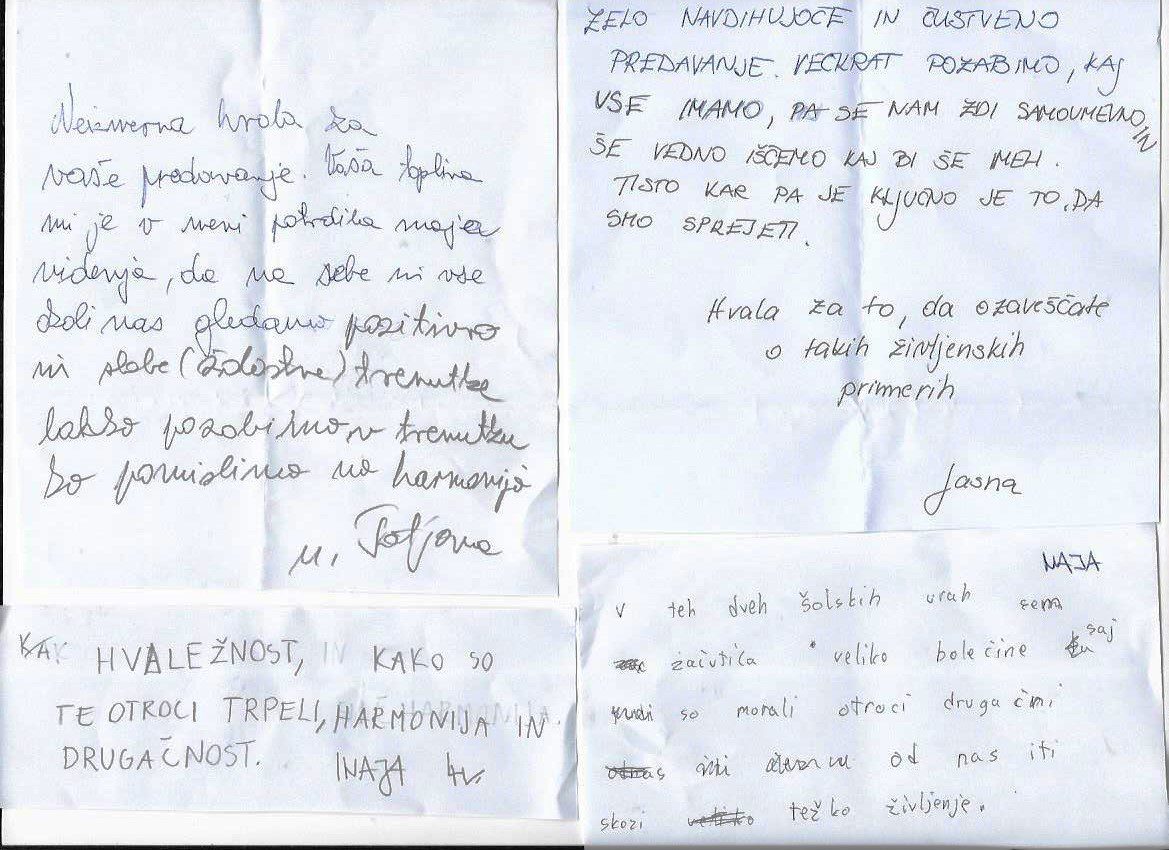 Neizmerna hvala za
vaše predavanje. Vaša toplina
mi je v meni potrdila moja
videnja, da na sebe in vse
okoli nas gledamo pozitivno
in slabe (žalostne) trenutke
lahko pozabimo v trenutku
ko pomislimo na harmonijo
Tatjana
ZELO NAVDIHUJOČE IN ČUSTVENO
PREDAVANJE. VEČKRAT POZABIMO, KAJ
VSE IMAMO, PA SE NAM ZDI SAMOUMEVNO, IN
ŠE VEDNO IŠČEMO KAJ BI ŠE IMELI.
TISTO KAR PA JE KLJUČNO JE TO, DA
SMO SPREJETI.
Hvala za to, da ozaveščate
o takih življenskih
primerih
Jasna
KAK HVALEŽNOST, IN KAKO SO
TE OTROCI TRPELI, HARMONIJA IN
DRUGAČNOST.
INAJA 4.r.
NAJA
V teh dveh šolskih urah sem
začutila veliko bolečine saj
so morali otroci drugačni
od nas iti
skozi težko življenje.